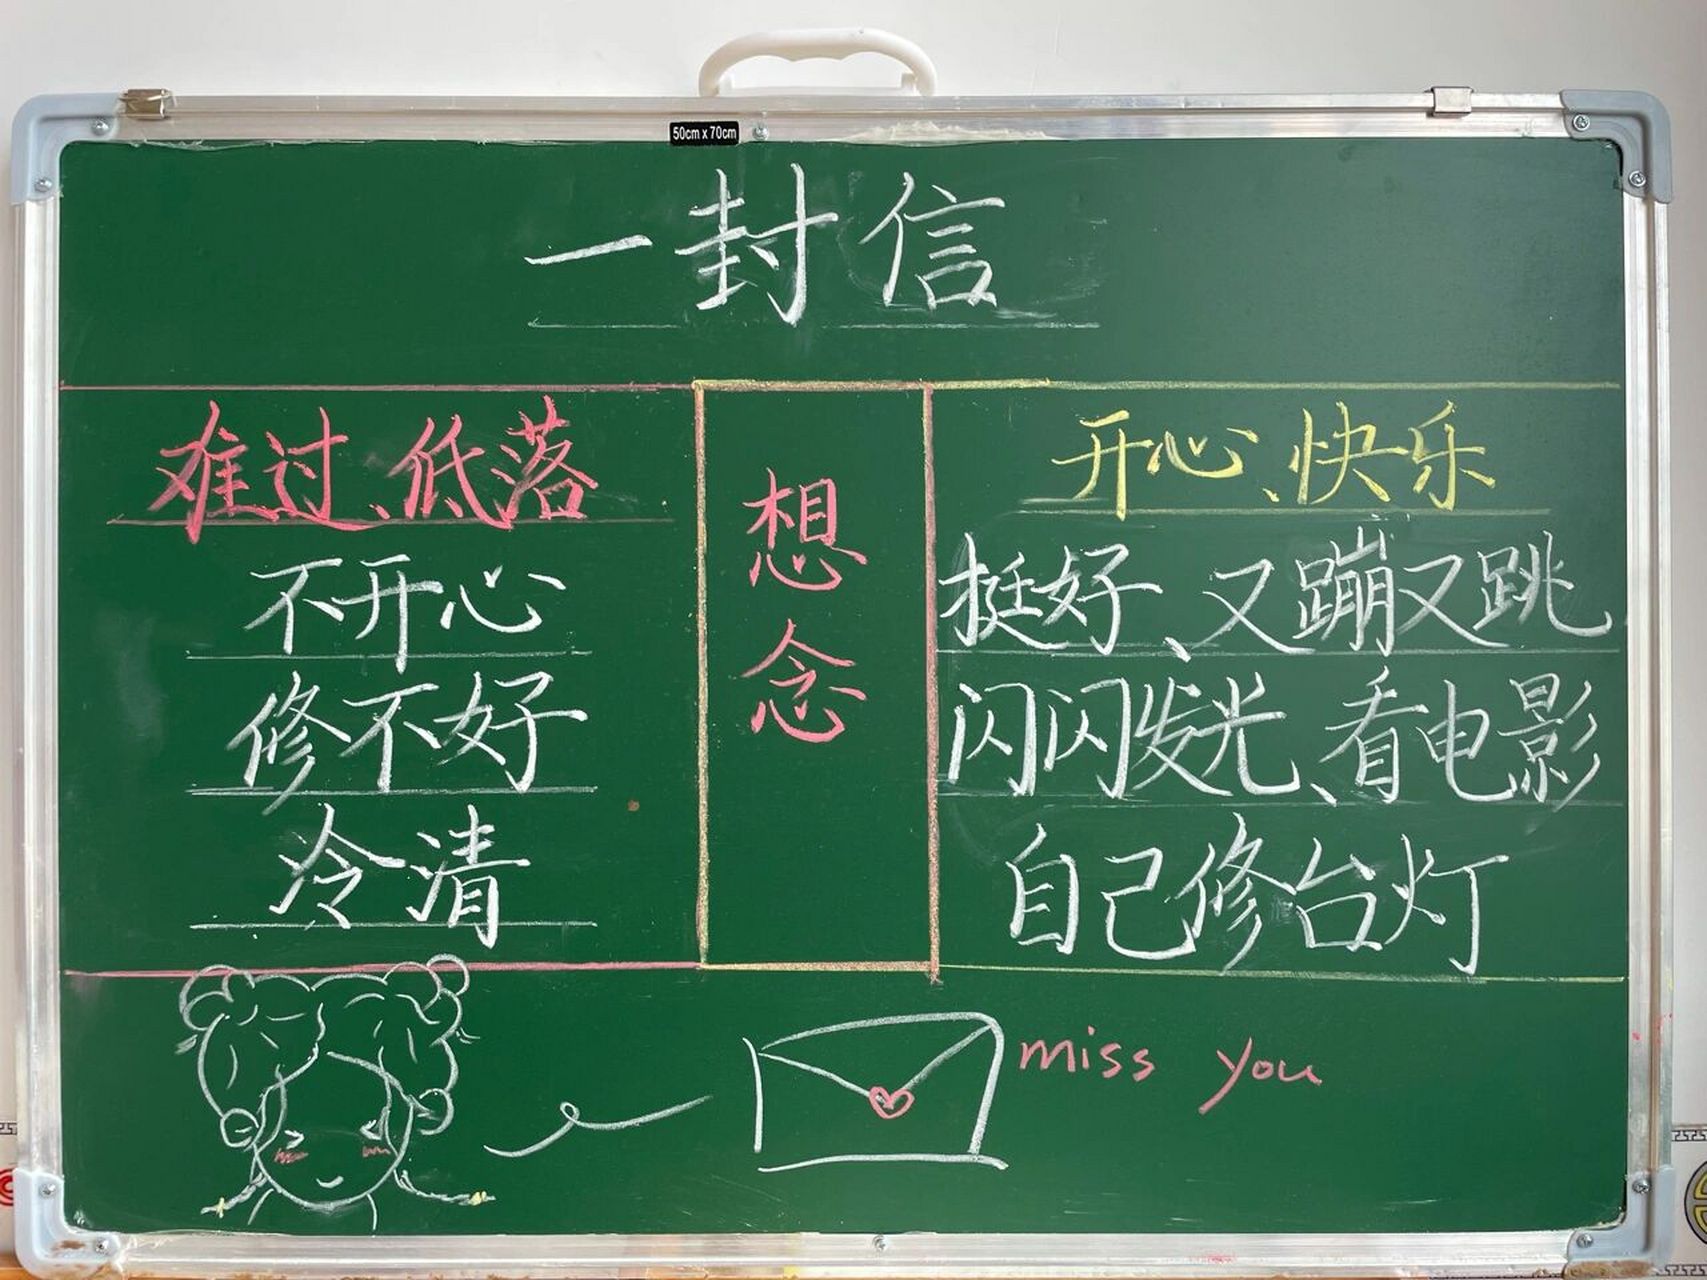 50cm x 70cm
一封信
难过、低落
不开心
修不好
冷清
想
念
开心、快乐
挺好、又蹦又跳
闪闪发光、看电影
自己修台灯
miss you